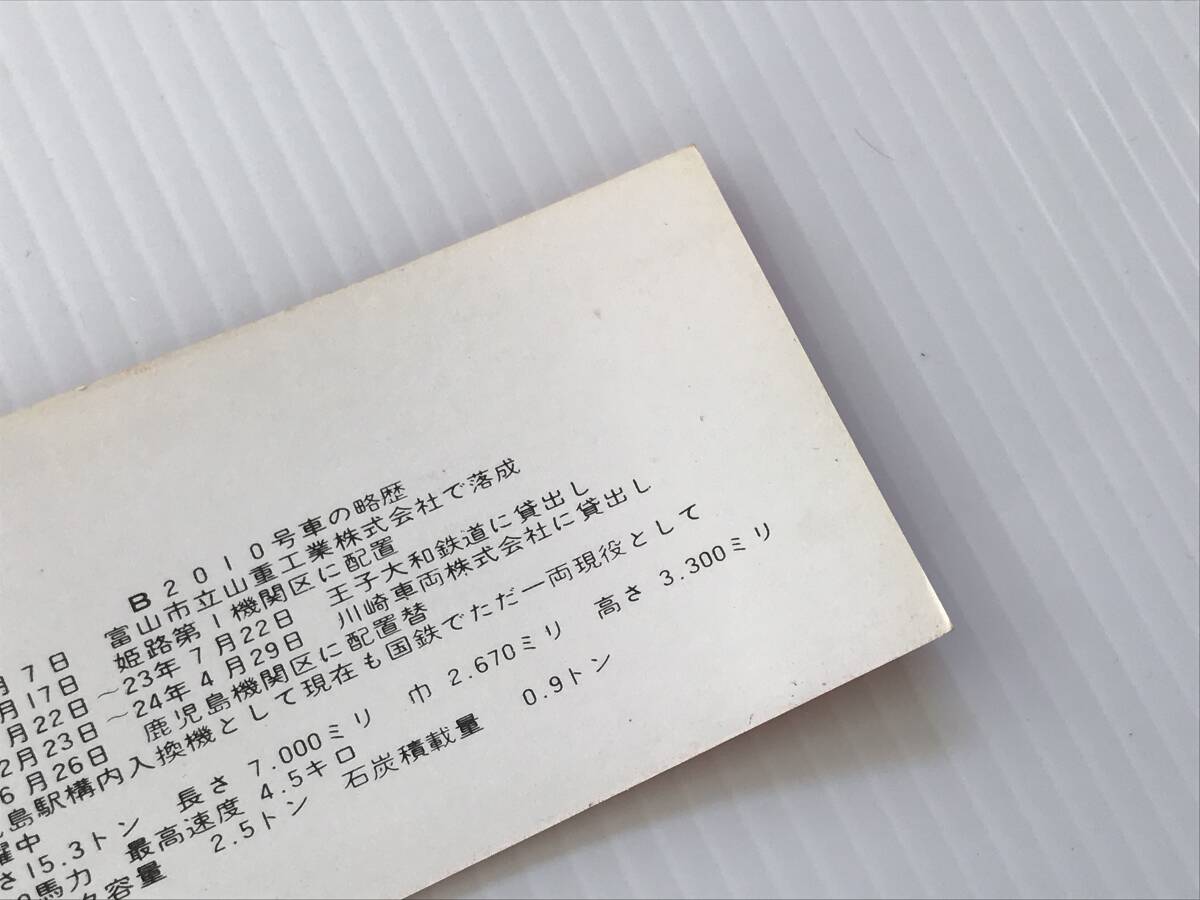 B2010号車の略歴
月7日 富山市立山重工業株式会社で落成
月17日 姫路第1機関区に配置
月22日~23年7月22日 王子大和鉄道に貸出し
2月23日~24年4月29日 川崎車両株式会社に貸出し
6月26日 鹿児島機関区に配置替
島駅構内入換機として現在も国鉄でただ一両現役として
躍中
さ15.3トン 長さ7.000ミリ 巾2.670ミリ 高さ3.300ミリ
馬力 最高速度4.5キロ
容量 2.5トン 石炭積載量 0.9トン